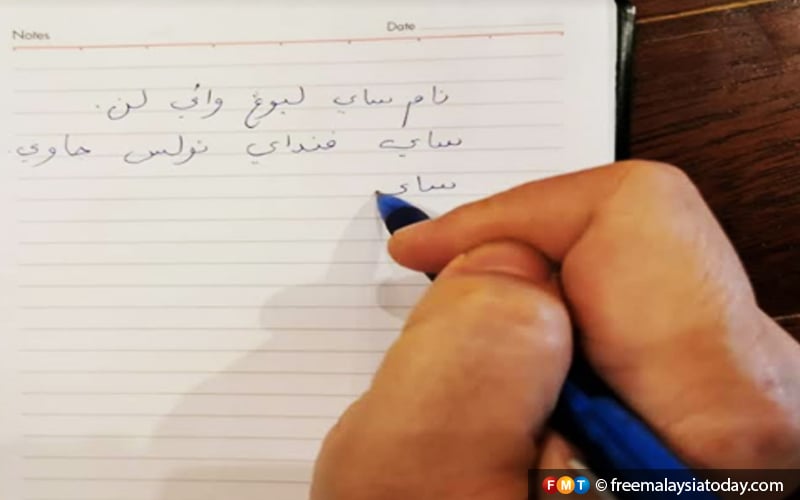 Notes Date
نام ساي ليوڠ وائي لن.
ساي ڤنداي تولس جاوي.
ساي
FMT © freemalaysiatoday.com